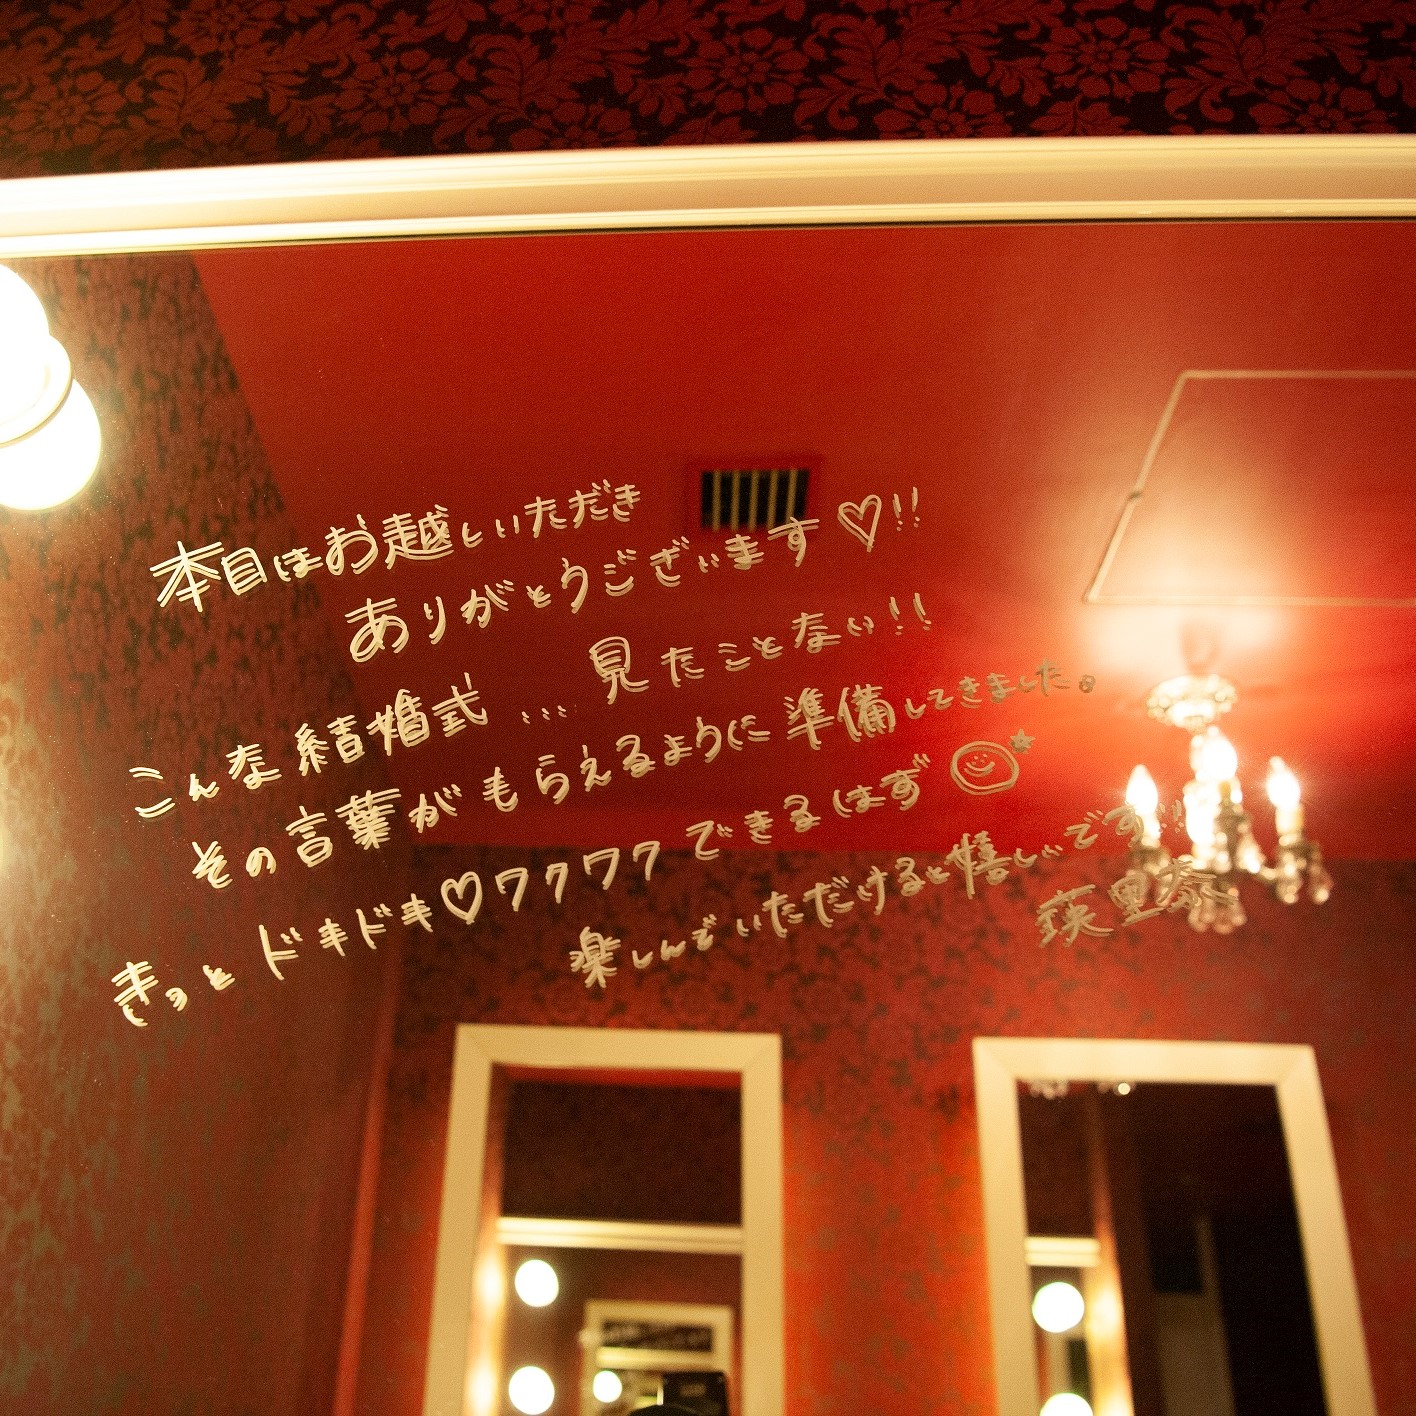 本日はお越しいただき
ありがとうございます♡!!
こんな結婚式...見たことない!!
その言葉がもらえるように準備してきました。
きっとドキドキ♡ワクワクできるはず
楽しんでいただけると嬉しいです!!
瑛里奈